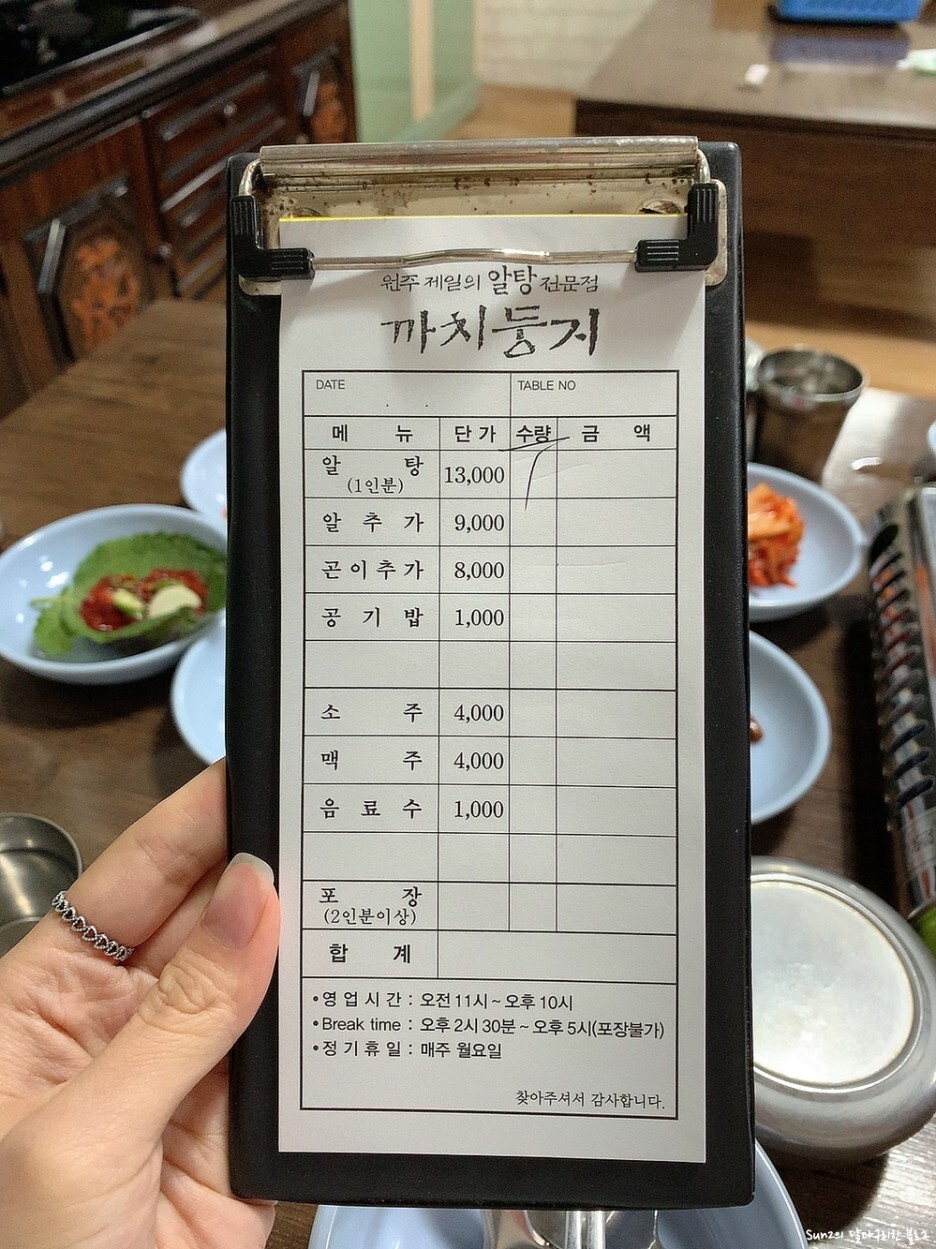 원주 제일의 알탕 전문점
까치둥지
DATE TABLE NO
메 뉴 단 가 수량 금 액
알 탕 13,000
(1인분)
알 추 가 9,000
곤 이 추 가 8,000
공 기 밥 1,000
소 주 4,000
맥 주 4,000
음 료 수 1,000
포 장
(2인분이상)
합 계
•영 업 시 간 : 오전 11시 ~ 오후 10시
•Break time : 오후 2시 30분 ~ 오후 5시(포장불가)
•정 기 휴 일 : 매주 월요일
찾아주셔서 감사합니다.
Sun2의 달다구리한 블로그